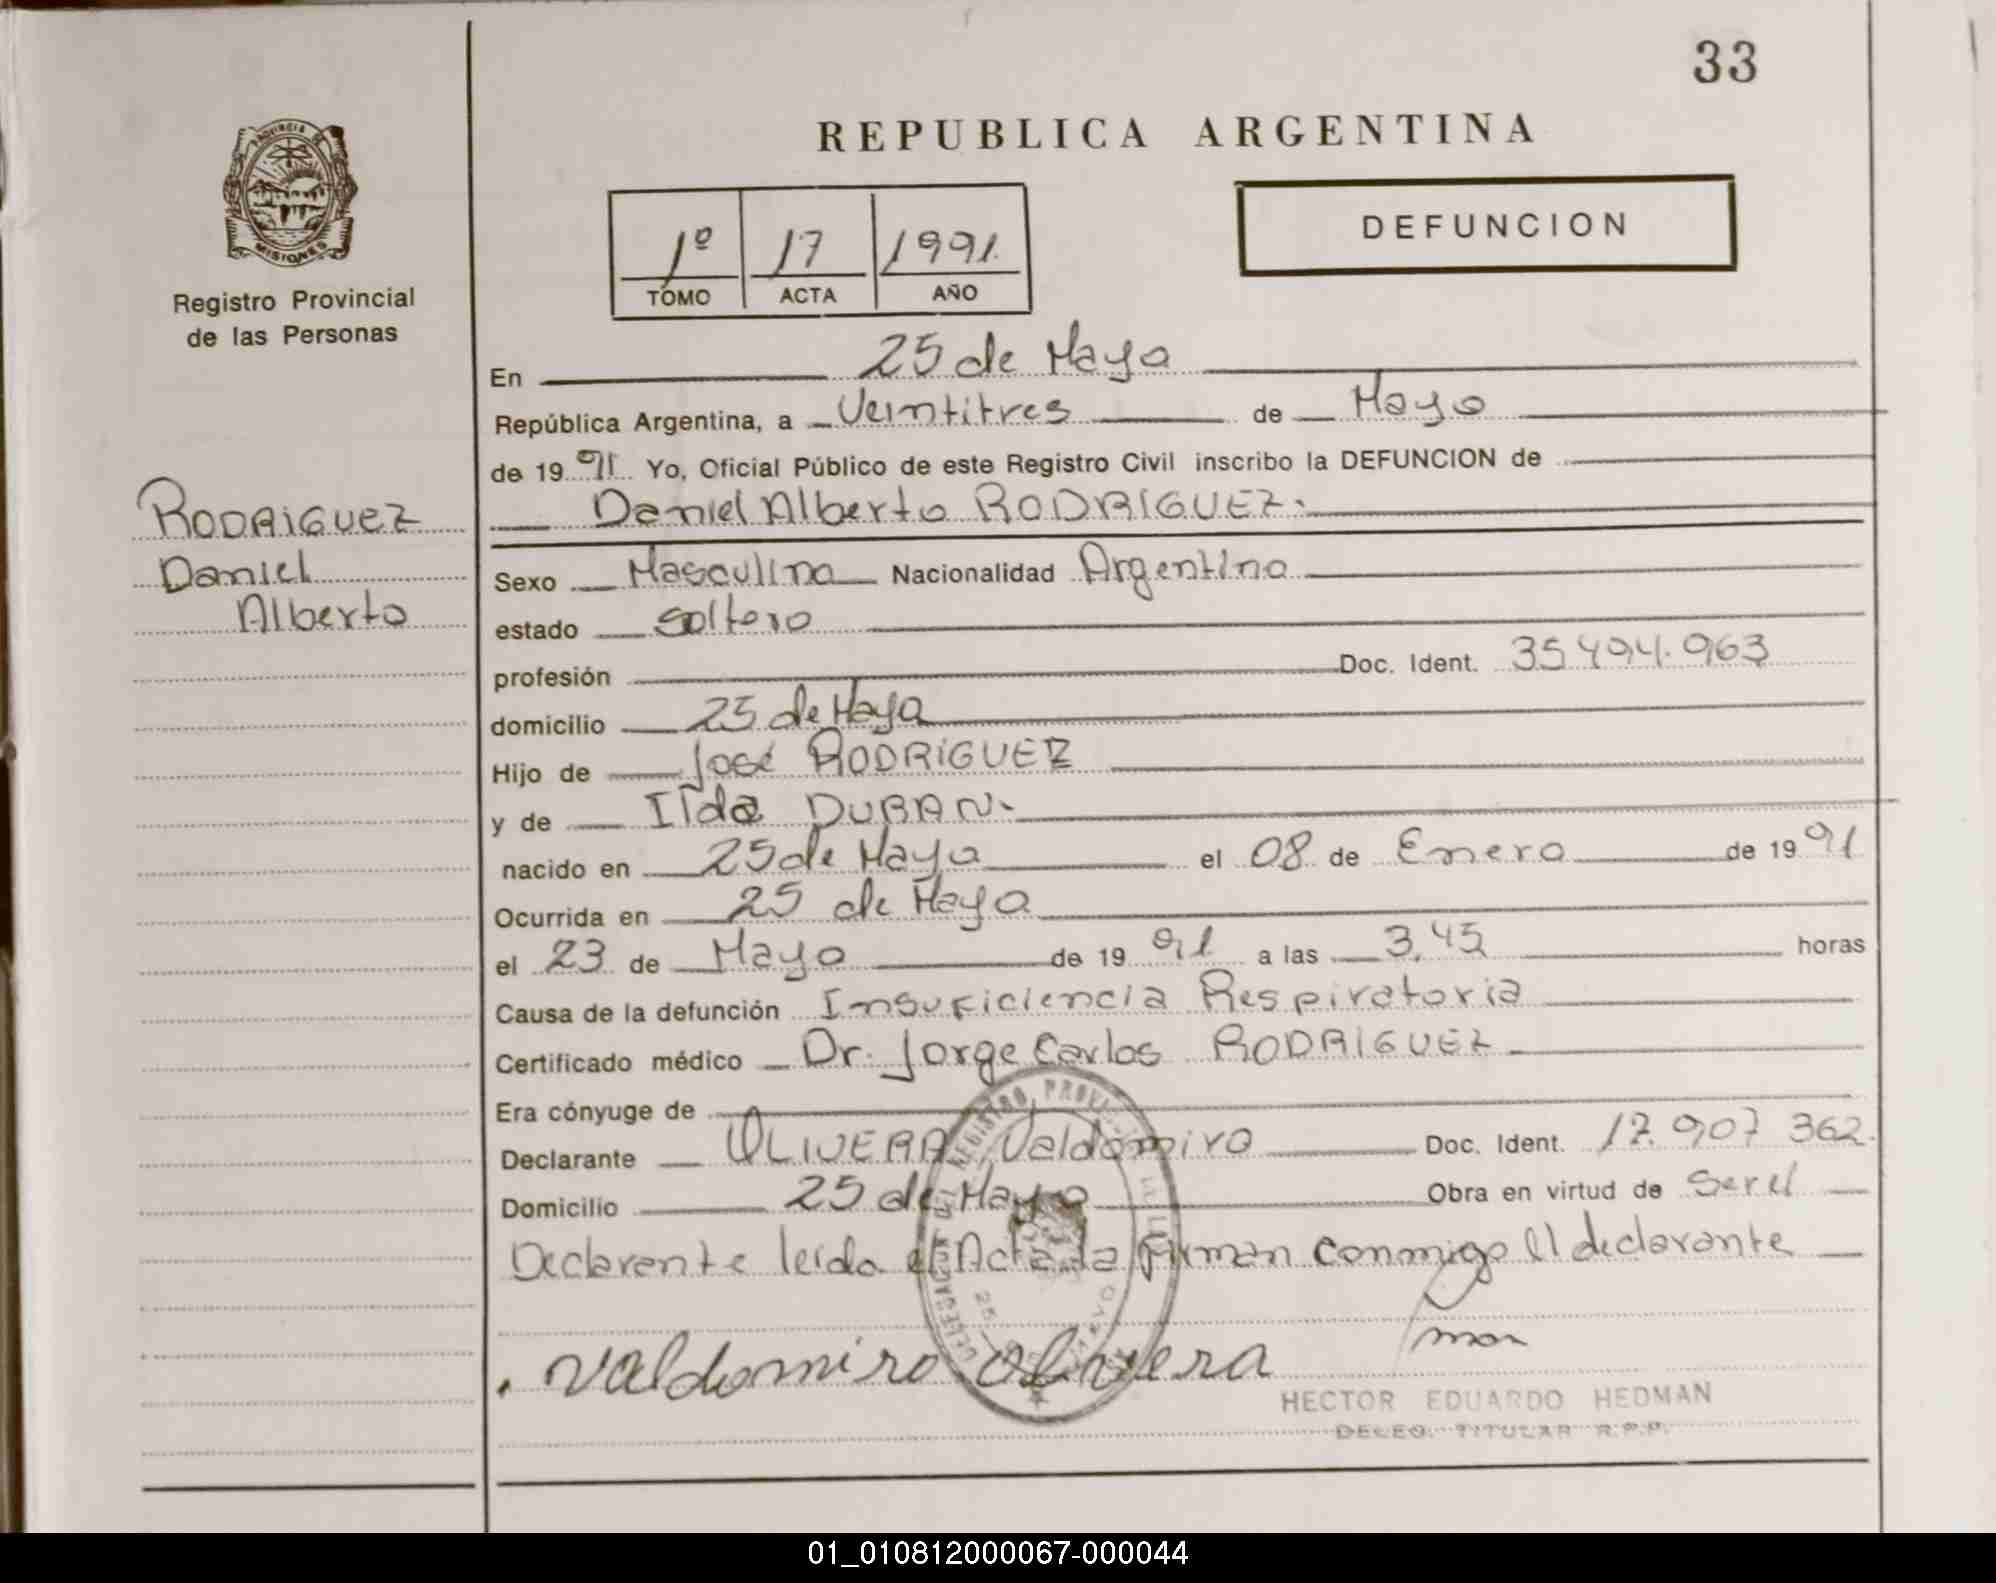 33
REPUBLICA ARGENTINA
PROVINCIA DE
MISIONES
Registro Provincial
de las Personas
1º 17 1991
TOMO ACTA AÑO
DEFUNCION
En 25 de Mayo
República Argentina, a Veintitres de Mayo
de 19 91 Yo, Oficial Público de este Registro Civil inscribo la DEFUNCION de
Daniel Alberto RODRIGUEZ.
RODRIGUEZ
Daniel
Alberto
Sexo Masculino Nacionalidad Argentino
estado soltero
profesión Doc. Ident. 35494.963
domicilio 25 de Mayo
Hijo de José RODRIGUEZ
y de Ilda DURAN
nacido en 25 de Mayo el 08 de Enero de 19 91
Ocurrida en 25 de Mayo
el 23 de Mayo de 19 91 a las 3,45 horas
Causa de la defunción Insuficiencia Respiratoria
Certificado médico Dr. Jorge Carlos RODRIGUEZ
Era cónyuge de
Declarante OLIVERA, Valdomiro Doc. Ident. 17.907 362.
Domicilio 25 de Mayo Obra en virtud de Ser el
Declarante leida el Acta la Firman conmigo el declarante
Valdomiro Olivera
HECTOR EDUARDO HEDMAN
DELEG. TITULAR R.P.P.
01_010812000067-000044